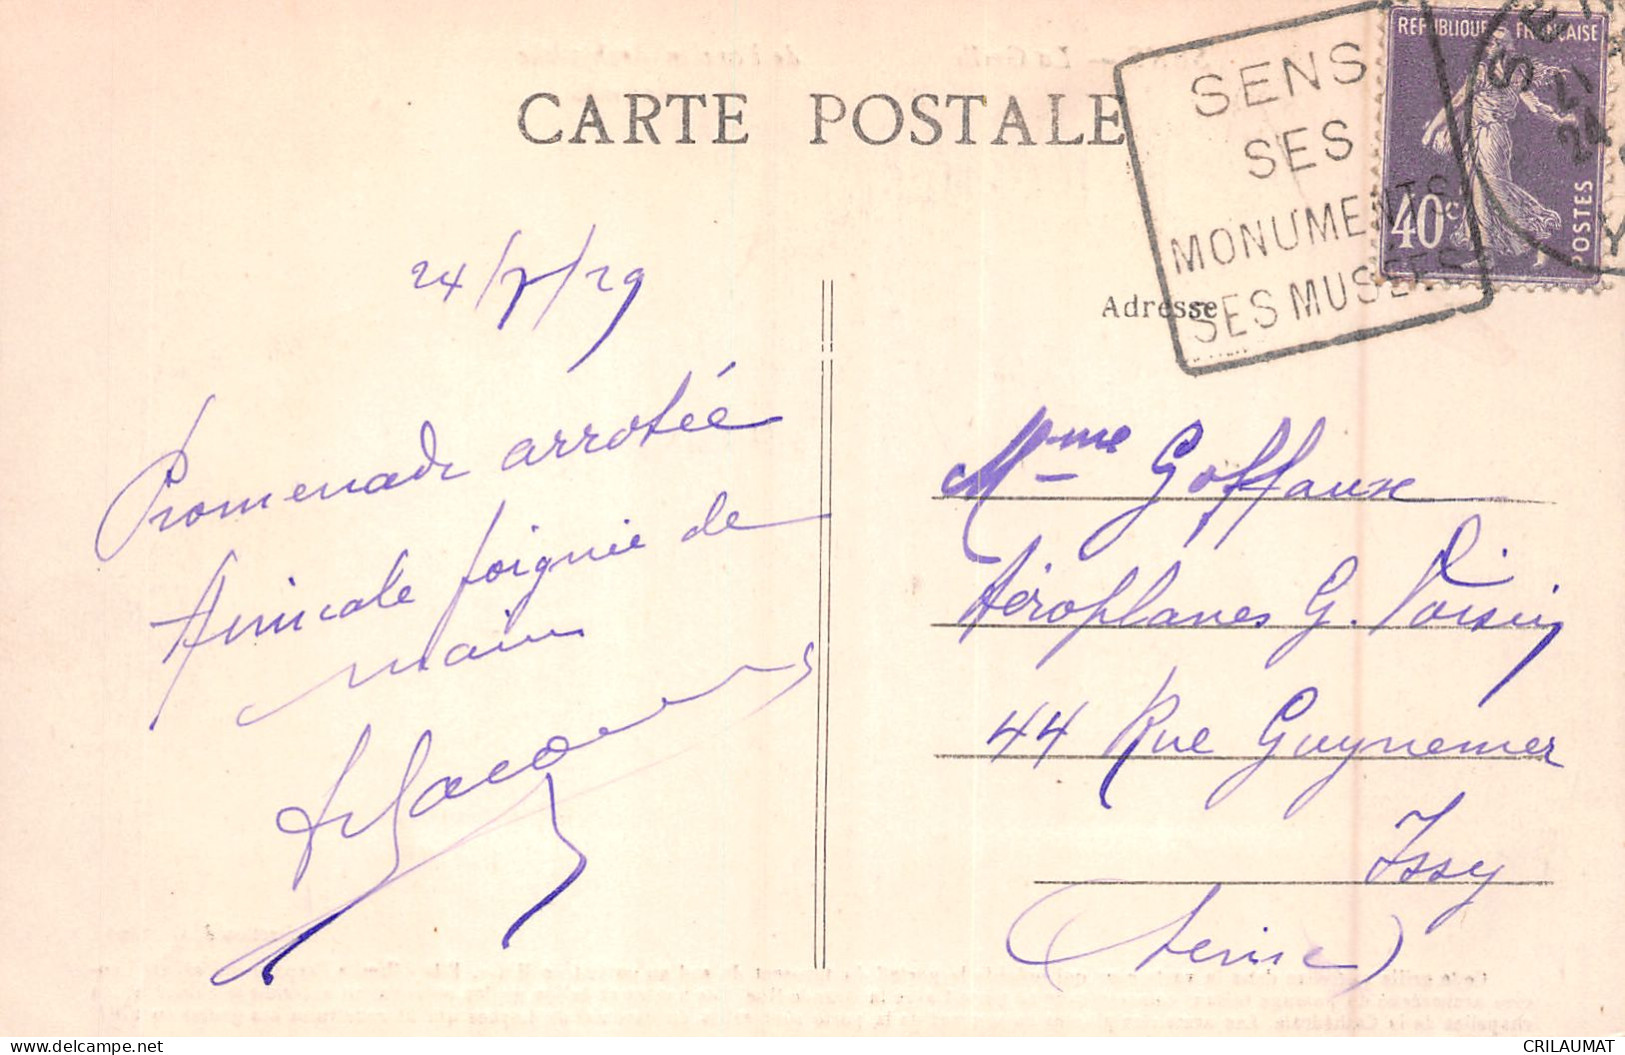 CARTE POSTALE
SENS
SES
MONUMENTS
SES MUSÉES
REPUBLIQUE FRANÇAISE
40c
POSTES
24
24/7/29
Promenade arrosée
Amicale poignée de
main
Adresse
Mme Goffaux
Aéroplanes G. Voisin
44 Rue Guynemer
Issy
(Seine)
delcampe.net
CRILAUMAT